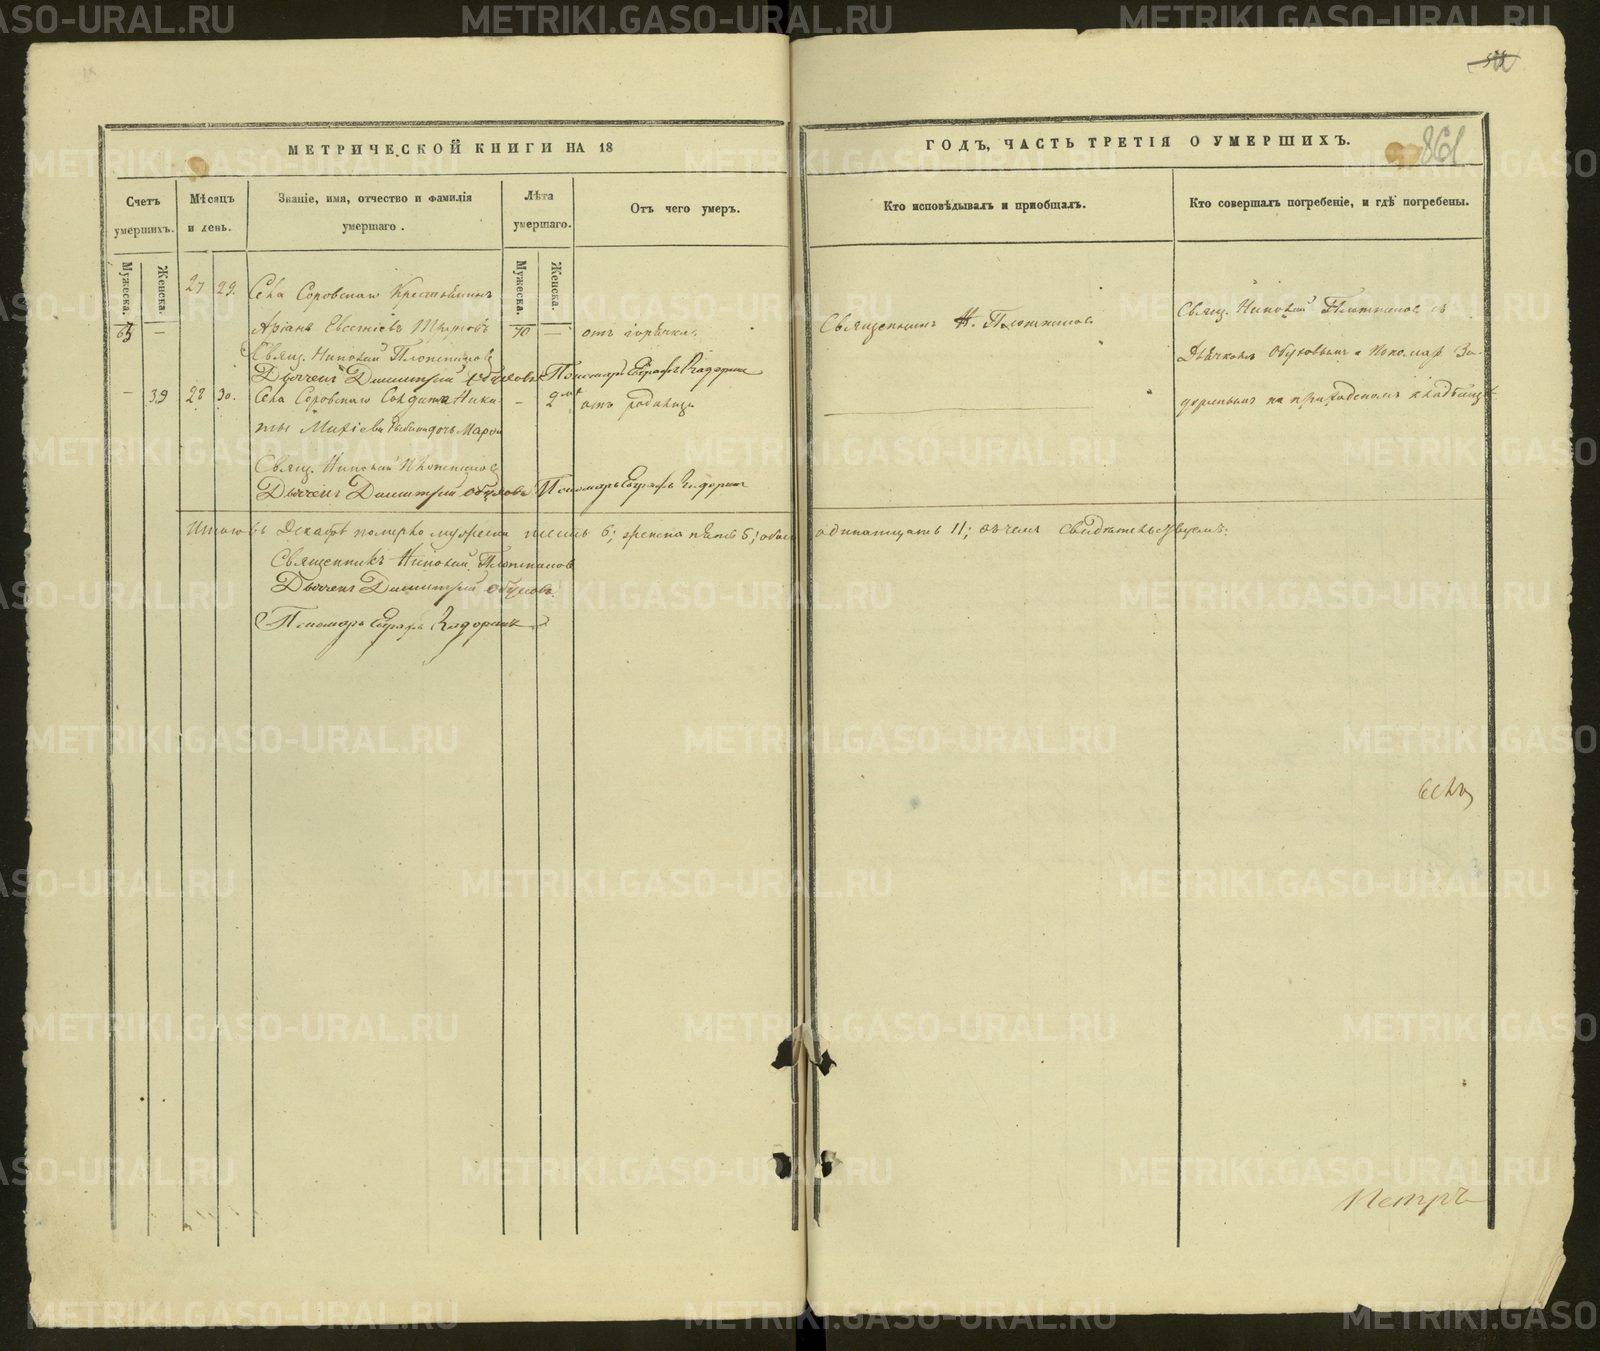 МЕТРИЧЕСКОЙ КНИГИ НА 18
ГОДЪ, ЧАСТЬ ТРЕТІЯ О УМЕРШИХЪ.
861
Счетъ умершихъ.
Мѣсяцъ и день.
Званіе, имя, отчество и фамилія умершаго.
Лѣта умершаго.
Отъ чего умеръ.
Кто исповѣдывалъ и пріобщалъ.
Кто совершалъ погребеніе, и гдѣ погребены.
Мужеска.
Женска.
Мужеска.
Женска.
27 29. Села Соровскаго Крестьянинъ
63 —
70 — отъ горячки.
Священникъ Н. Плотниковъ
Свящ. Николай Плотниковъ съ
Свящ. Николай Плотниковъ
Дьячекъ Димитрій Обуховъ Пономарь Евграфъ Задоринъ
Дьячкомъ Обуховымъ и Пономар. За-
— 39 28 30. Села Соровскаго Солдата Ники-
— 2 отъ родимца
доринымъ на приходскомъ кладбищѣ
ты дочь Марѳа
Свящ. Николай Плотниковъ
Дьячекъ Димитрій Обуховъ Пономарь Евграфъ Задоринъ
Итого въ Декабрѣ померло мужеска шесть 6; женска пять 5; обоего одинатцать 11; въ чемъ свидѣтельствуемъ:
Священникъ Николай Плотниковъ
Дьячекъ Димитрій Обуховъ.
Пономарь Евграфъ Задоринъ
Петръ
METRIKI.GASO-URAL.RU